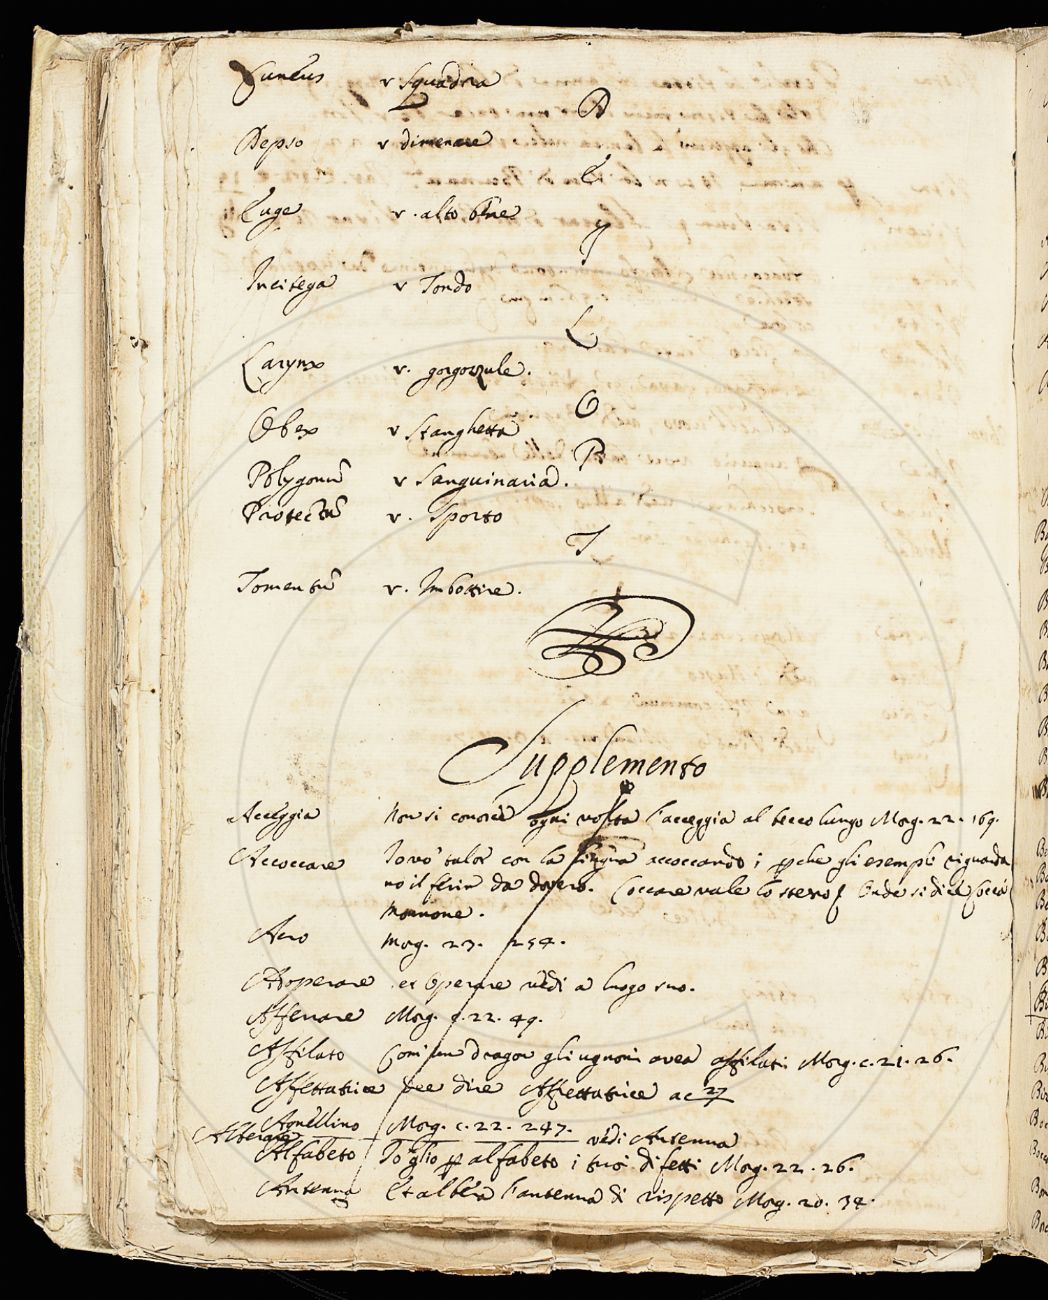 Cuneus v Squadra
D
Depso v dimenare
E
Euge v. alto bene
I
Incitega v Tondo
L
Larynx v. gorgozzule.
O
Obex v Stanghetta
P
Polygonũ v Sanguinaria.
Protectũ v. Sporto
T
Tomentũ v. Imbottire.
Supplemento
Acceggia Non si conosce ogni volta l'acceggia al becco lungo Morg. 22. 169.
Accoccare Io vo' talor con la lingua accoccando i ꝑche gli esempli riguarda
no il ferir da dovero. Coccare vale lo stesso Onde si dice Cocca
Monnone.
Acro Morg. 23. 254.
Adoperare et Operare vedi a luogo suo.
Afferrare Morg. c. 22. 49.
Affilato Com' un dragon gli ugnoni avea affilati Morg. c. 21. 26.
Affettatrice per dire Affettatrice ac 27
Agnellino Morg. c. 22. 247.
Alberare vedi Antenna
Alfabeto Io glio ꝑ alfabeto i tuoi difetti Morg. 22. 26.
Antenna Et alberà l'antenna di rispetto Morg. 20. 34.